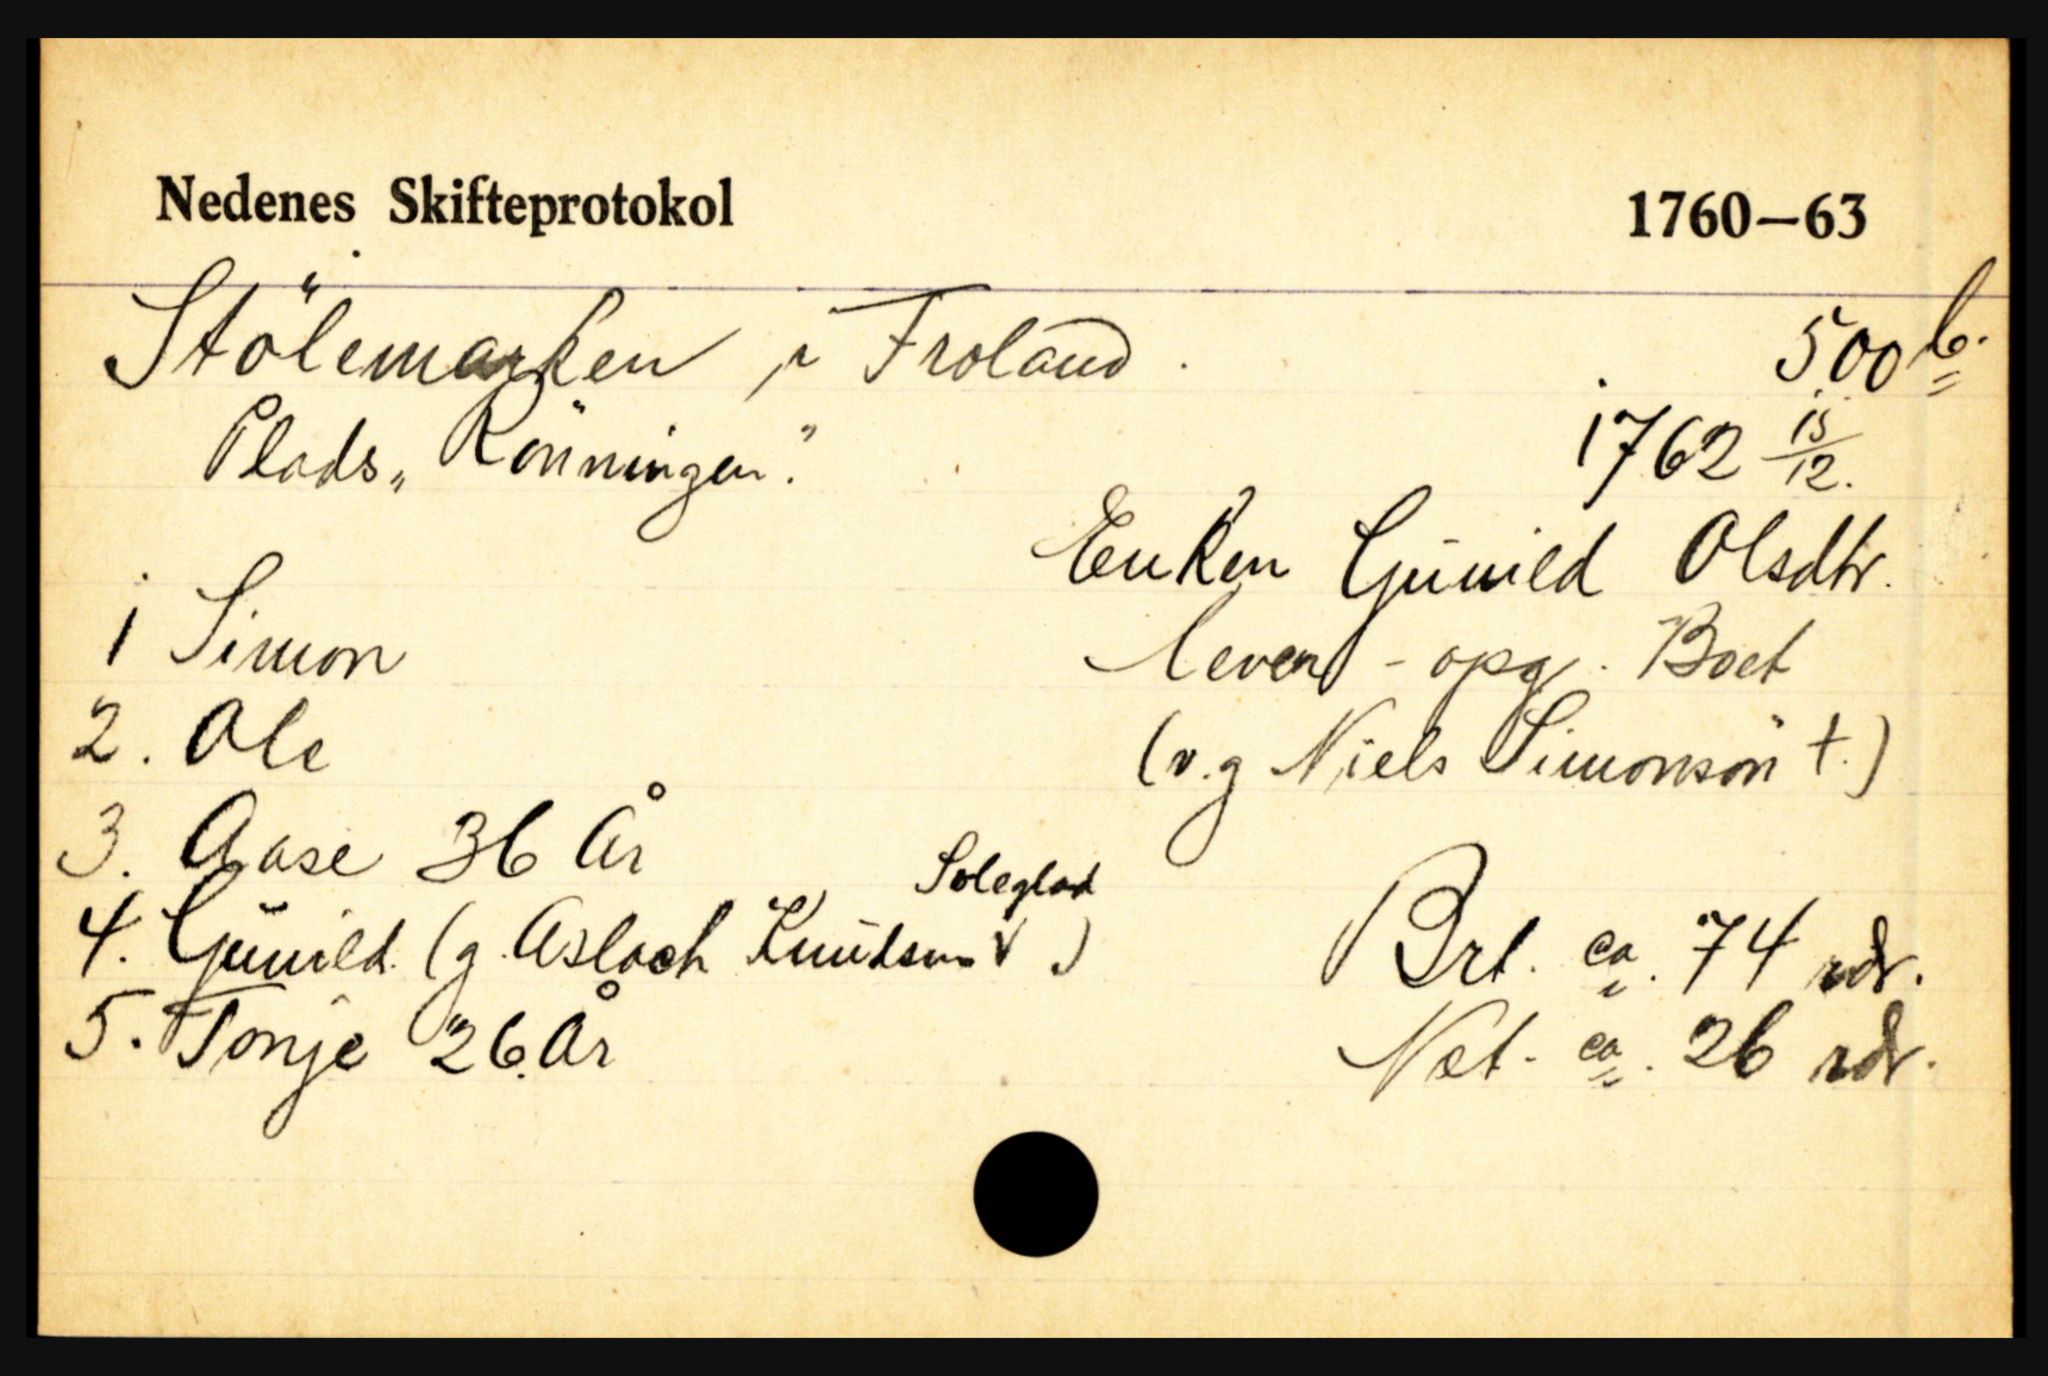 Nedenes Skifteprotokol 1760—63
Stölemarken i Froland. 500 b.
Plads „Rönningen." 1762 15/12.
Enken Gunild Olsdtr.
lever - opg. Boet
(v. g Niels Simonsön †.)
1 Simon
2. Ole
3. Aase 36 År
Soleglad
4. Gunild. (g. Aslach Knudsen )
5. Tonje 26 År
Brt. ca. 74 rdr.
Net. ca. 26 rdr.